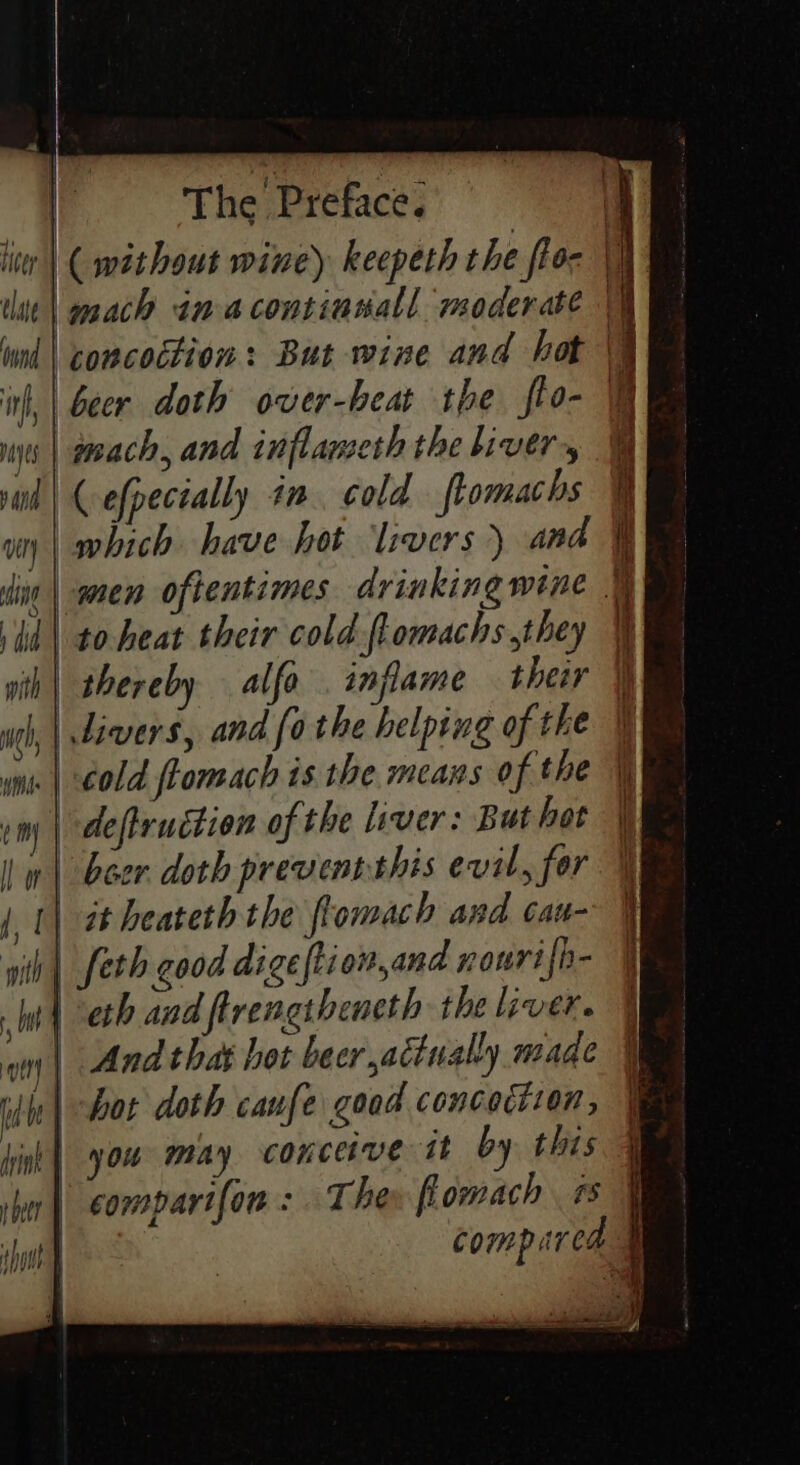 The Preface.
(without wine) keepeth the ſto-
mach in a continuall moderate
concoction: But wine and hot
beer doth over-heat the ſto-
mach, and inflameth the liver,
(eſpecially in cold ſtomachs
which have hot livers) and
men oftentimes drinking wine
to heat their cold ſtomachs, they
thereby alſo inflame their
livers, and ſo the helping of the
cold ſtomach is the means of the
deſtruction of the liver: But hot
beer doth prevent this evil, for
it heateth the ſtomach and cau-
ſeth good digeſtion, and nouriſh-
eth and ſtrengtheneth the liver.
And that hot beer, actually made
hot doth cauſe good concoction,
you may conceive it by this
compariſon: The ſtomach is
compared